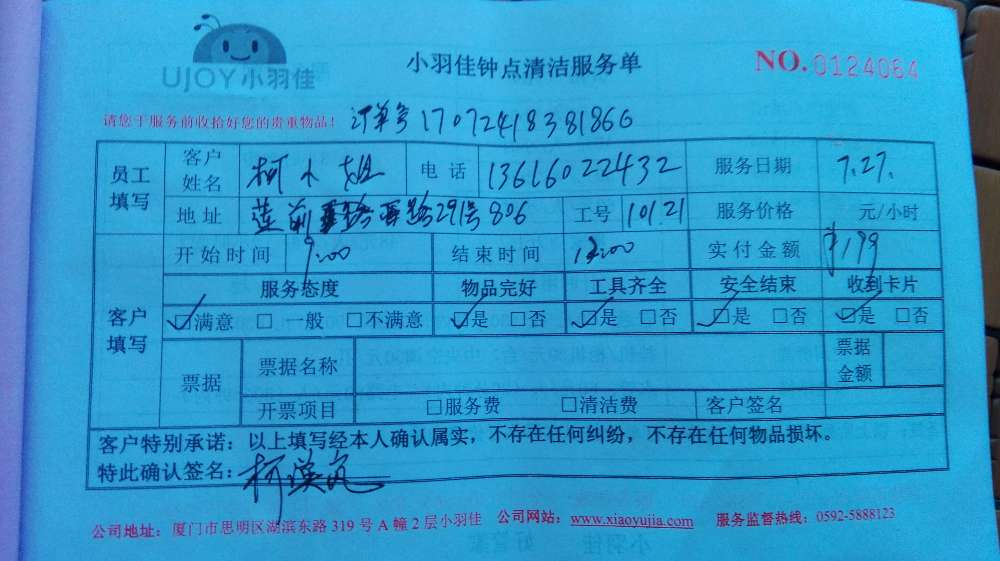 UJOY小羽佳
小羽佳钟点清洁服务单
NO.0124064
请您于服务前收拾好您的贵重物品！ 订单号17072418381866
员工填写 客户姓名 柯小姐 电话 13616022432 服务日期 7.27.
地址 莲前 路291号806 工号 10121 服务价格 元/小时
客户填写 开始时间 9:00 结束时间 12:00 实付金额 ¥199
服务态度 物品完好 工具齐全 安全结束 收到卡片
☑满意 □一般 □不满意 ☑是 □否 ☑是 □否 ☑是 □否 ☑是 □否
票据 票据名称 票据金额
开票项目 □服务费 □清洁费 客户签名
客户特别承诺：以上填写经本人确认属实，不存在任何纠纷，不存在任何物品损坏。
特此确认签名：柯
公司地址：厦门市思明区湖滨东路319号A幢2层小羽佳 公司网站：www.xiaoyujia.com 服务监督热线：0592-5888123